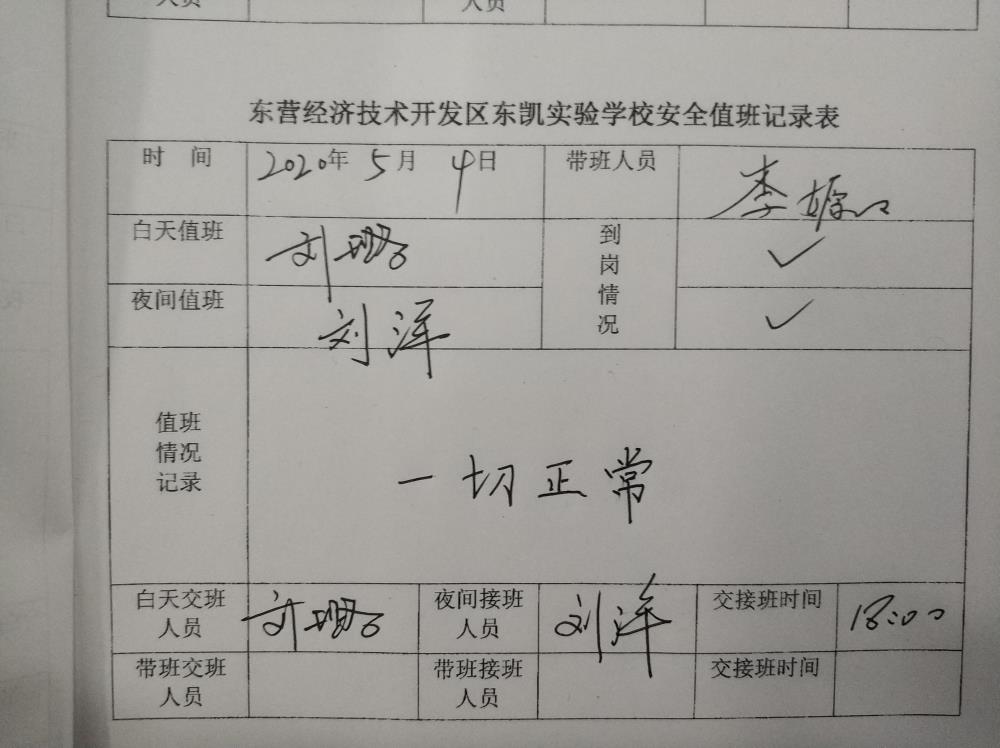 人员 人员
东营经济技术开发区东凯实验学校安全值班记录表
时 间 2020年 5月 4日 带班人员 李
白天值班 刘 到岗情况 ✓
夜间值班 刘洋 ✓
值班
情况
记录
一切正常
白天交班 夜间接班 交接班时间 18:00
人员 刘 人员 刘洋
带班交班 带班接班 交接班时间
人员 人员